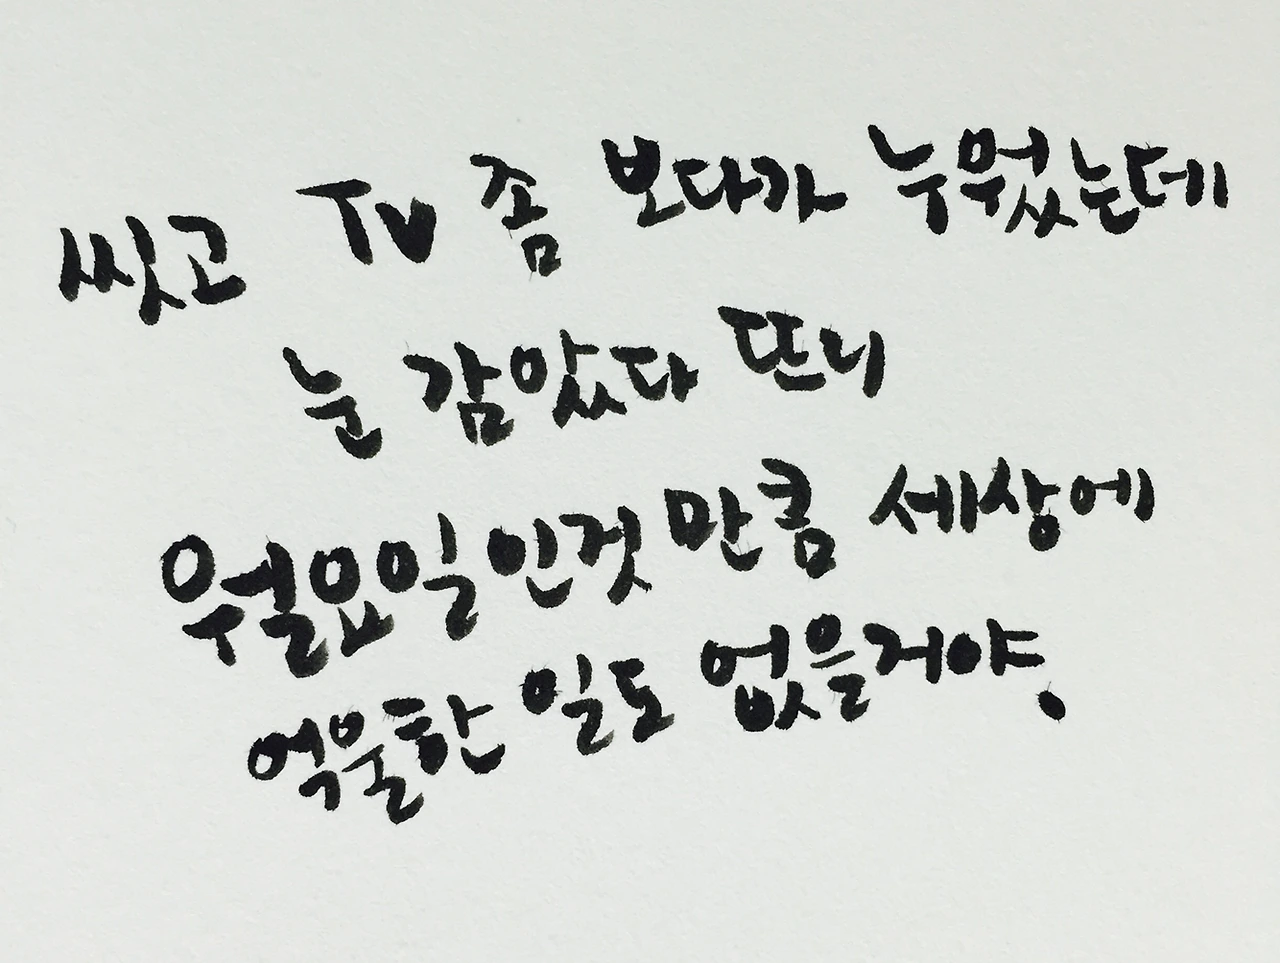 씻고 TV 좀 보다가 누웠는데
눈 감았다 뜨니
월요일인것 만큼 세상에
억울한 일도 없을거야.